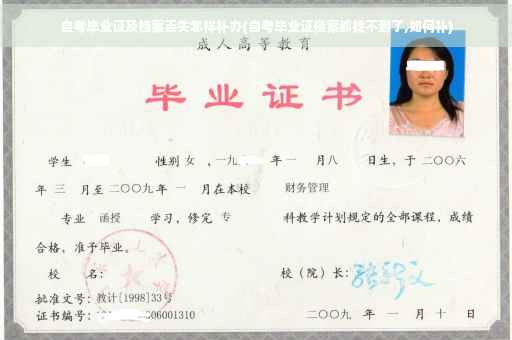 自考毕业证及档案丢失怎样补办(自考毕业证档案都找不到了,如何补)
成人高等教育
毕业证书
学生 性别 女 ,一九 年 一 月八 日生，于 二〇〇六
年 三 月至 二〇〇九 年 一 月在本校 财务管理
专业 函授 学习，修完 专 科教学计划规定的全部课程，成绩
合格，准予毕业。
校 名： 校（院）长：
批准文号：教计[1998]33号
证书编号： 06001310 二〇〇九 年 一 月 十 日